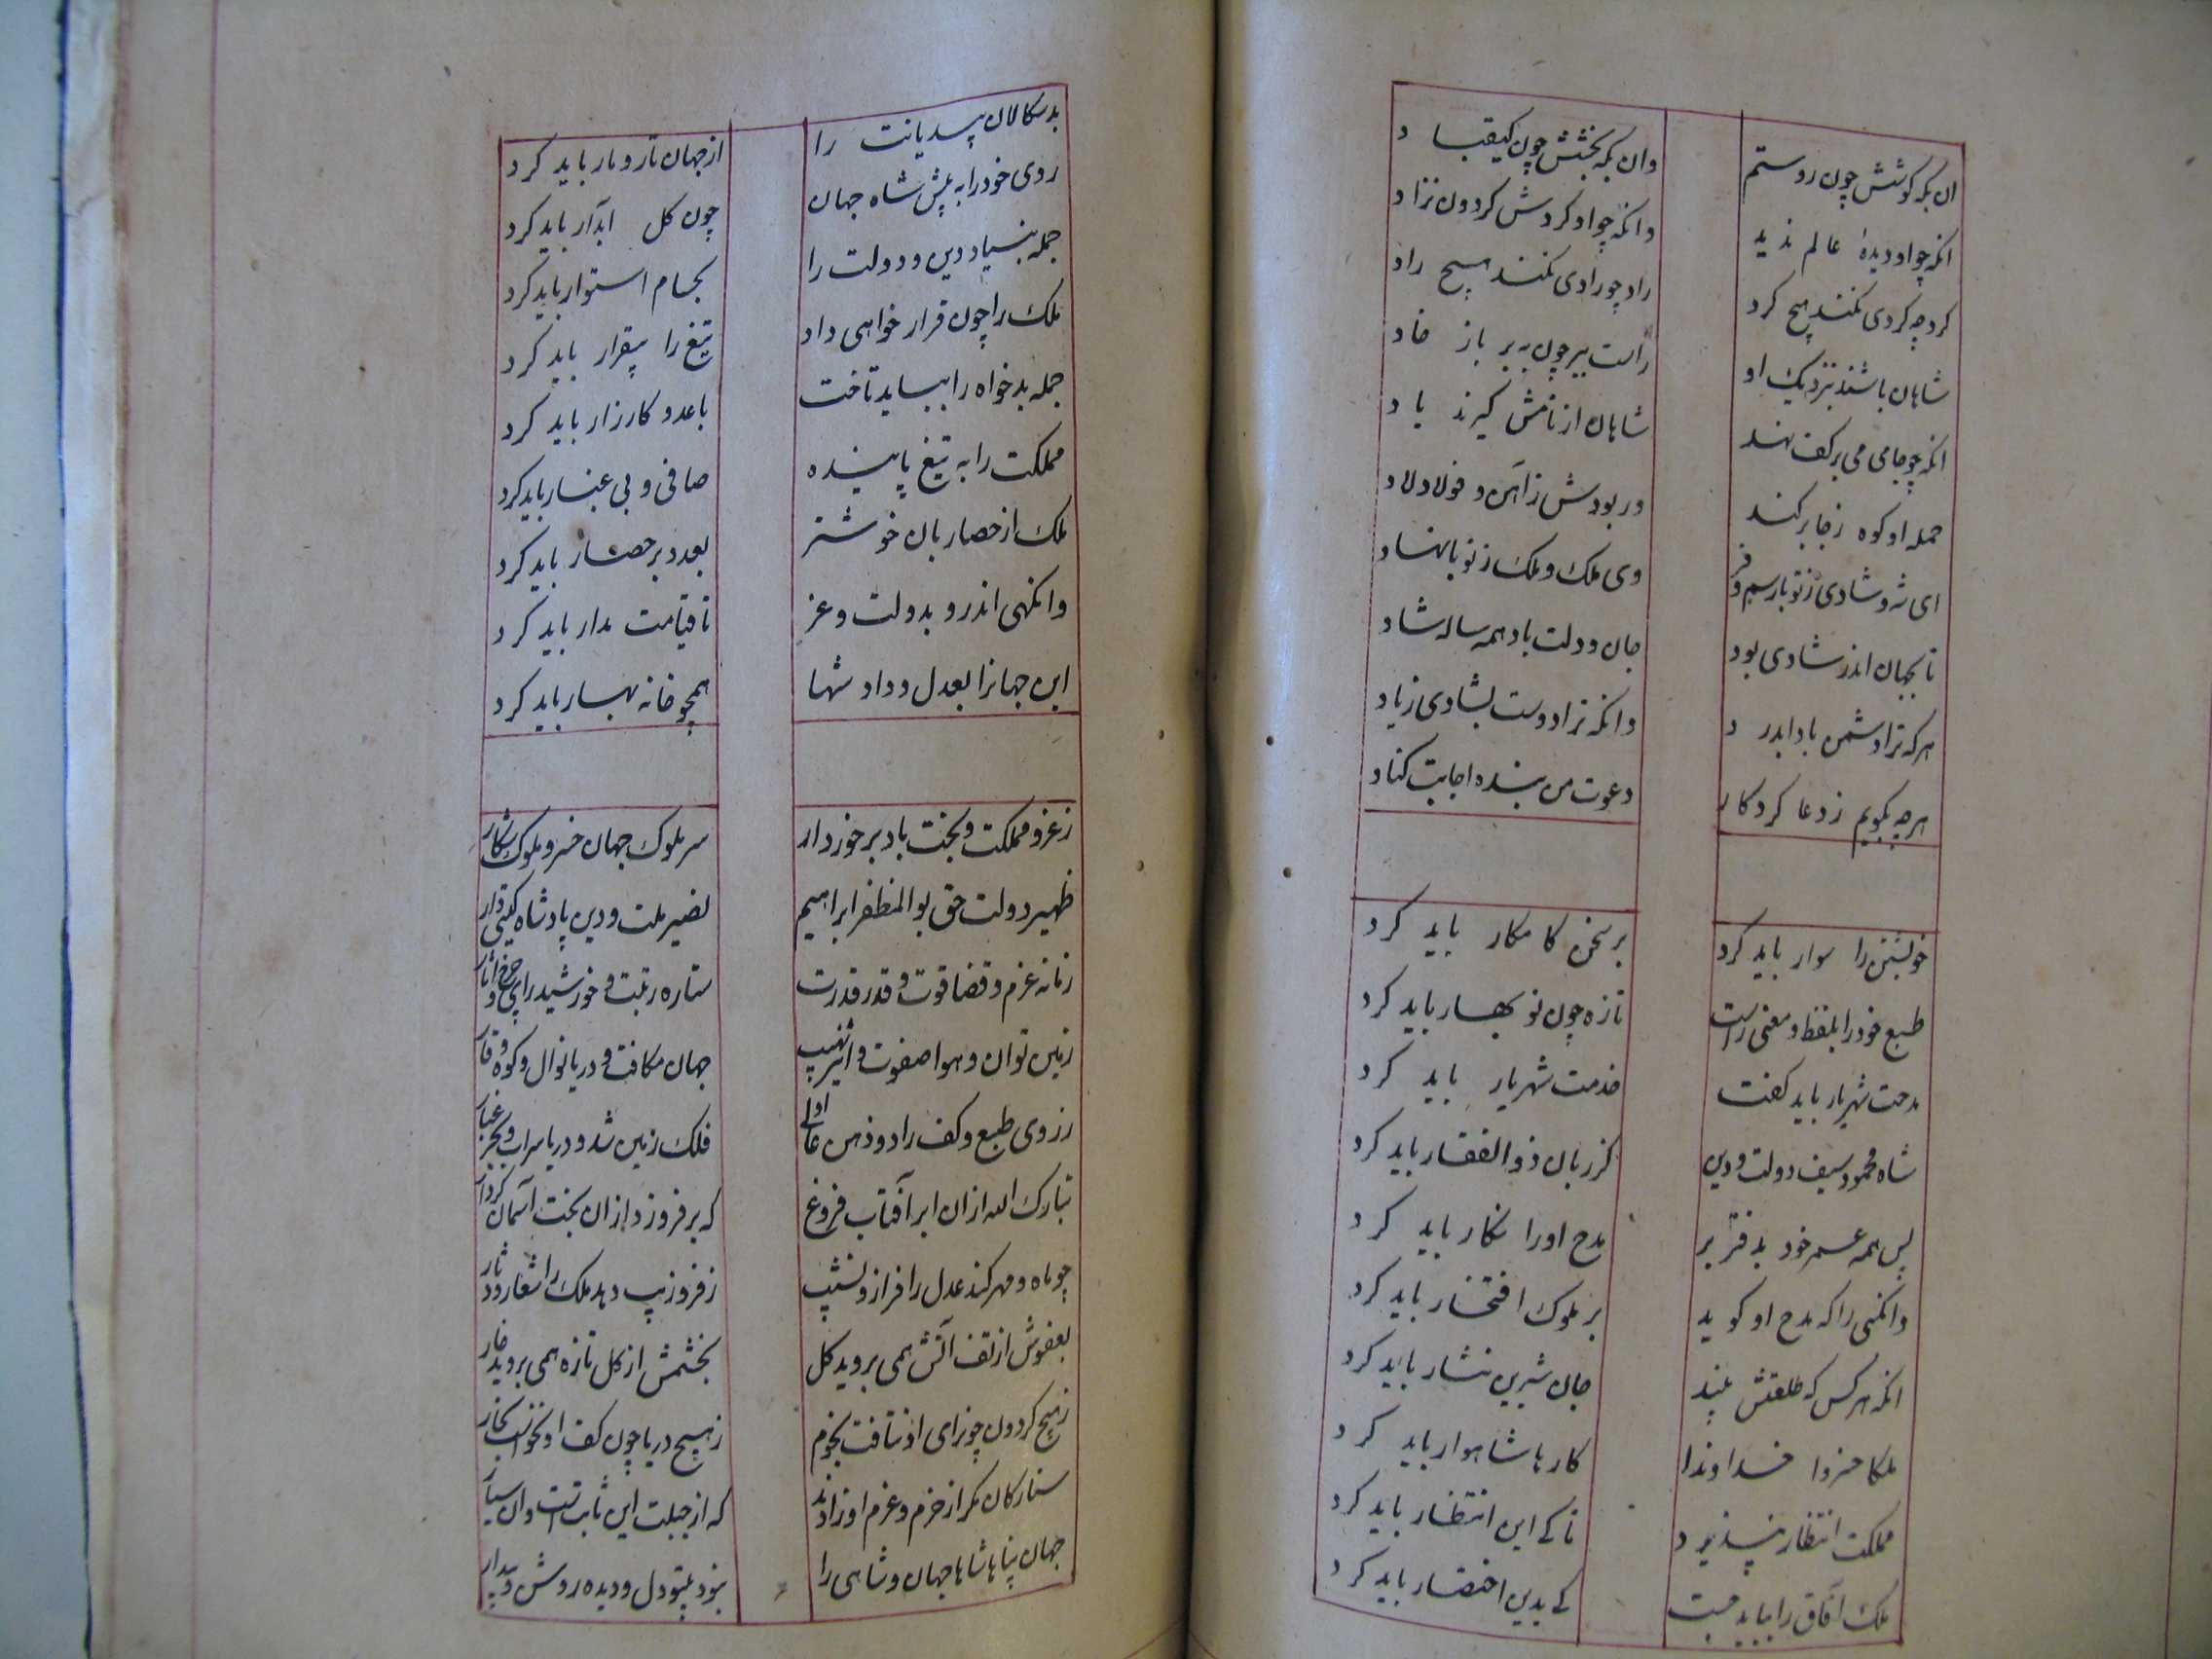 ان بکه کوشش چون روستم
وان بکه بخشش چون کیقباد
انکه چو او دیدهٔ عالم ندید
وانکه چو او کردش کردون نزاد
کرد چه کردی نکند هیچ کرد
راد چو رادی نکند هیچ راد
شاهان باشند بنزدیک او
راست ببر چون به بر باز خاد
انکه چو جامی می بر کف نهند
شاهان از نامش کیرند یاد
حمله او کوه ز جا بر کند
ور بودش زاهن و فولاد لاد
ای شه و شادی ز تو با رسم و فر
وی ملک و ملک ز تو با نهاد
تا بجهان اندر شادی بود
جان و دلت باد همه ساله شاد
هر که ترا دشمن بادا بدرد
وانکه ترا دوست بشادی زیاد
هر چه بکویم ز دعا کردکار
دعوت من بنده اجابت کناد
خویشتن را سوار باید کرد
بر سخن کامکار باید کرد
طبع خود را بلفظ و معنی راست
تازه چون نو بهار باید کرد
مدحت شهریار باید کفت
خدمت شهریار باید کرد
شاه محمود سیف دولت و دین
کز زبان ذوالفقار باید کرد
پس همه عمر خود بدفتر بر
مدح او را نکار باید کرد
وانکسی را که مدح او کوید
بر ملوک افتخار باید کرد
انکه هر کس که طلعتش بیند
جان شیرین نثار باید کرد
ملکا خسروا خداوندا
کارها شاهوار باید کرد
مملکت انتظار نپذیرد
تا کے این انتظار باید کرد
ملک آفاق را بباید جست
کے بدین اختصار باید کرد
بدسکالان بیدیانت را
از جهان تار و مار باید کرد
روی خود را به پیش شاه جهان
چون کل ابدار باید کرد
جمله بنیاد دین و دولت را
بحسام استوار باید کرد
ملک را چون قرار خواهی داد
تیغ را بیقرار باید کرد
جمله بدخواه را بباید تاخت
با عدو کارزار باید کرد
مملکت را به تیغ پاینده
صافی و بی غبار باید کرد
ملک از حصاربان خوشتر
بعد و بر حصار باید کرد
وانکهی اندرو بدولت و عز
تا قیامت مدار باید کرد
این جهانرا بعدل و داد شها
همچو خانه بهار باید کرد
ز عز و مملکت و بخت باد برخوردار
سر ملوک جهان خسرو ملوک شکار
ظهیر دولت حق بوالمظفر ابراهیم
نصیر ملت و دین پادشاه کیتی دار
زمانه عزم و قضا قوت و قدر قدرت
ستاره رتبت و خورشید رای و چرخ آثار
زمین توان و هوا صفوت و اثیر نهیب
جهان مکافت و دریا نوال و کوه وقار
ز روی طبع و کف راد و ذهن عالی او
فلک زمین شد و دریا سراب و بحر غبار
تبارک الله از ان ابر آفتاب فروغ
که بر فروزد از ان بخت آسمان کردار
چو ماه و مهر کند عدل را فراز و نشیب
ز فر و زیب دهد ملک را شعار و دثار
بعفوش از تف آتش همی بروید کل
بخشمش از کل تازه همی بروید خار
ز هیچ کردون چو رای او نتافت نجوم
ز هیچ دریا چون کف او نخواست بخار
ستارکان مکر از حزم و عزم او زادند
که از جبلت این ثابت است و ان سیار
جهان پناها شاها جهان و شاهی را
بنود بیتو دل و دیده روشن و بیدار